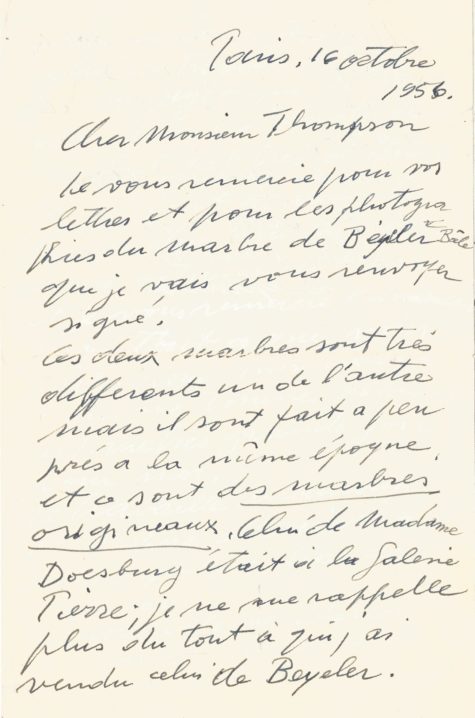 Paris, 16 octobre
1956.
Cher Monsieur Thompson
Je vous remercie pour vos
lettres et pour les photogra
phies du marbre de Beyeler à Bâle
que je vais vous renvoyer
signé.
Ces deux marbres sont très
differents un de l'autre
mais il sont fait a peu
près a la même époque,
et ce sont des marbres
origineaux. Celui de Madame
Doesburg était à la Galerie
Pierre; je ne me rappelle
plus du tout à qui j'ai
vendu celui de Beyeler.